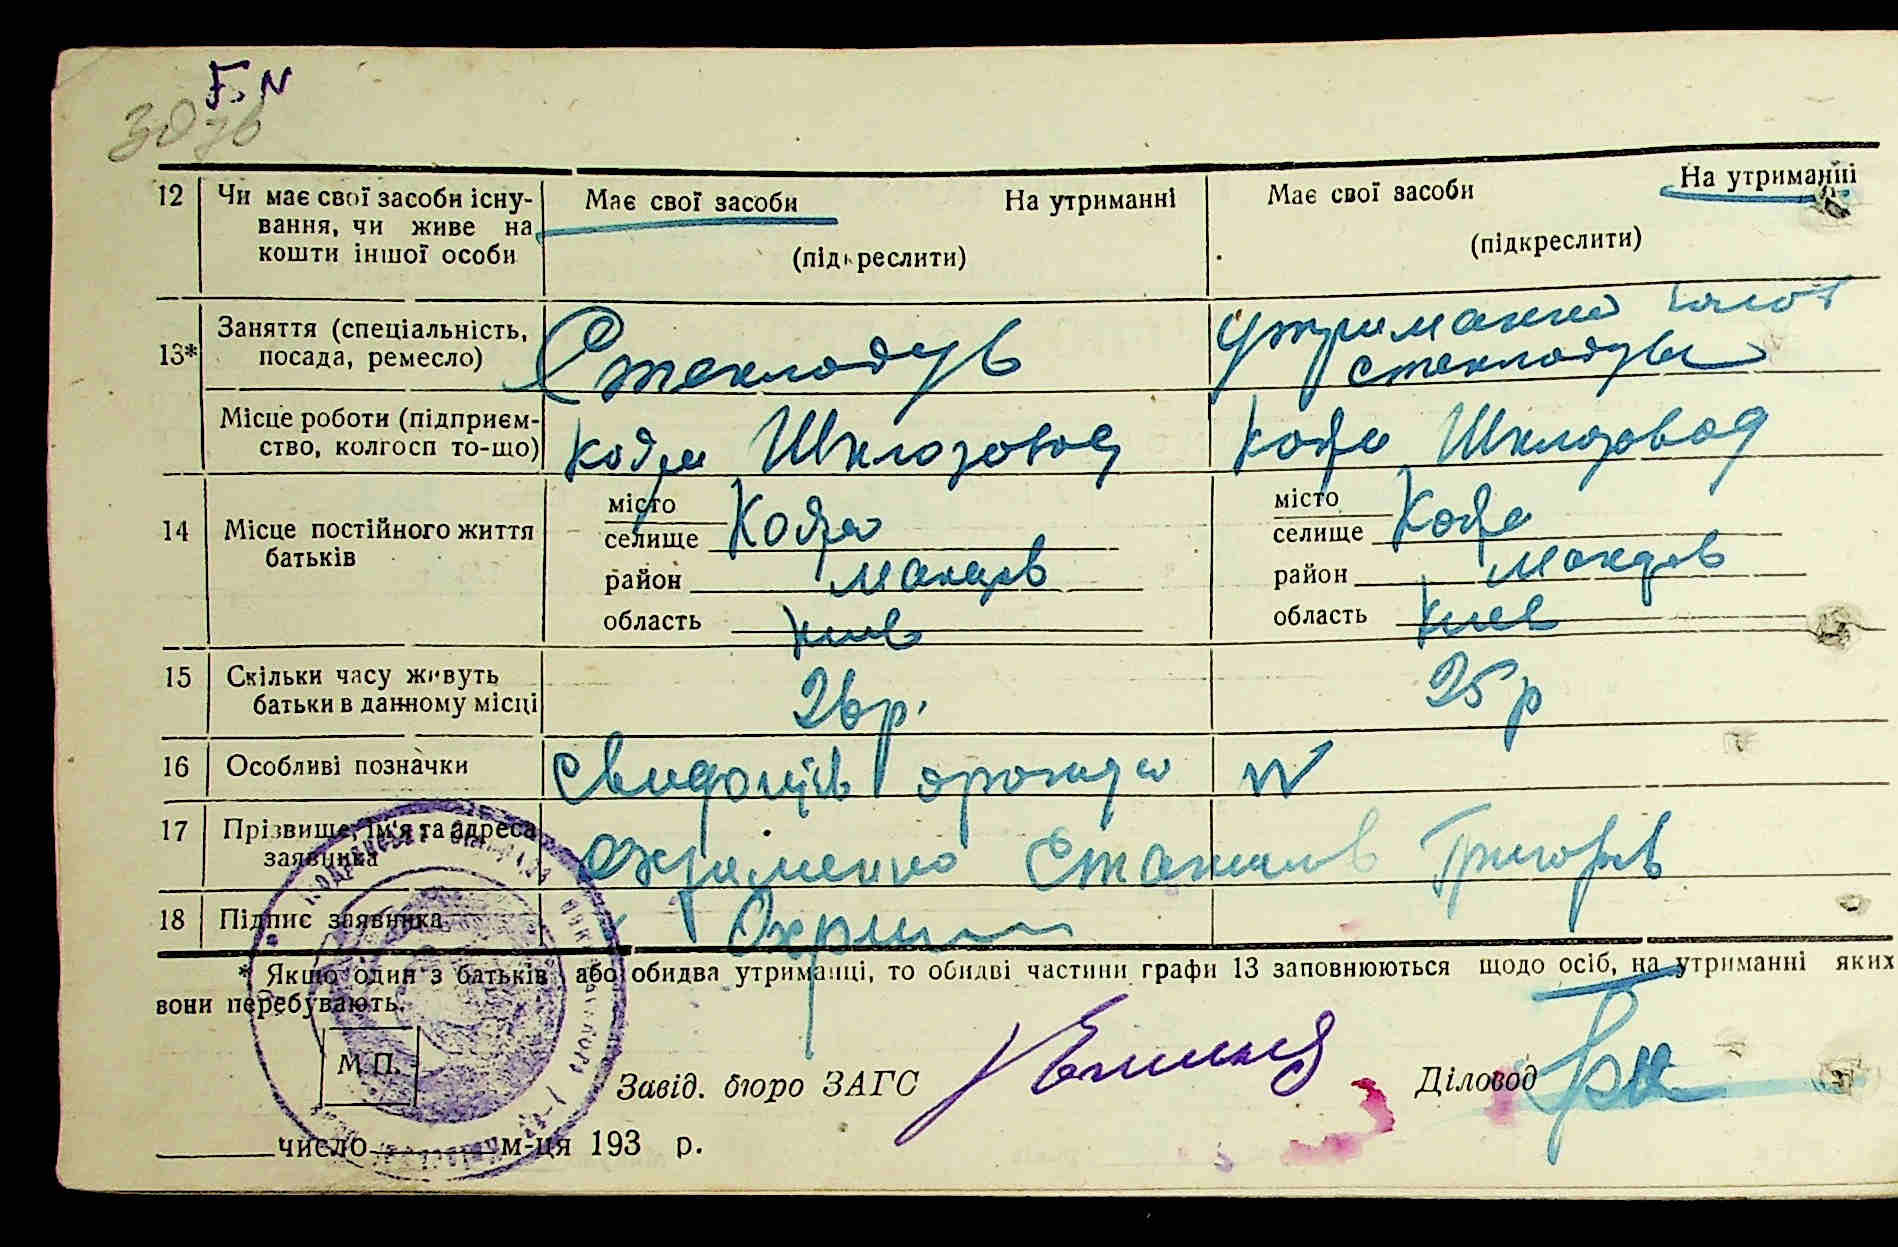 F. N
3876
12 Чи має свої засоби існу- Має свої засоби На утриманні Має свої засоби На утриманні
вання, чи живе на
кошти іншої особи (підкреслити) (підкреслити)
13* Заняття (спеціальність, Стеклодув Утриманка
посада, ремесло) стеклодува
Місце роботи (підприєм- Кодра Шклозавод Кодра Шклозавод
ство, колгосп то-що)
14 Місце постійного життя
батьків
місто місто
селище Кодра селище Кодра
район Макарів район Макарів
область Киев область Киев
15 Скільки часу живуть 26 р. 25 р
батьки в данному місці
16 Особливі позначки N
17 Прізвище, ім'я та адреса
заявника Охрименко Станислав Григорів
18 Підпис заявника Охрим
* Якщо один з батьків або обидва утриманці, то обидві частини графи 13 заповнюються щодо осіб, на утриманні яких
вони перебувають.
М.П.
Завід. бюро ЗАГС Діловод
число м-ця 193 р.